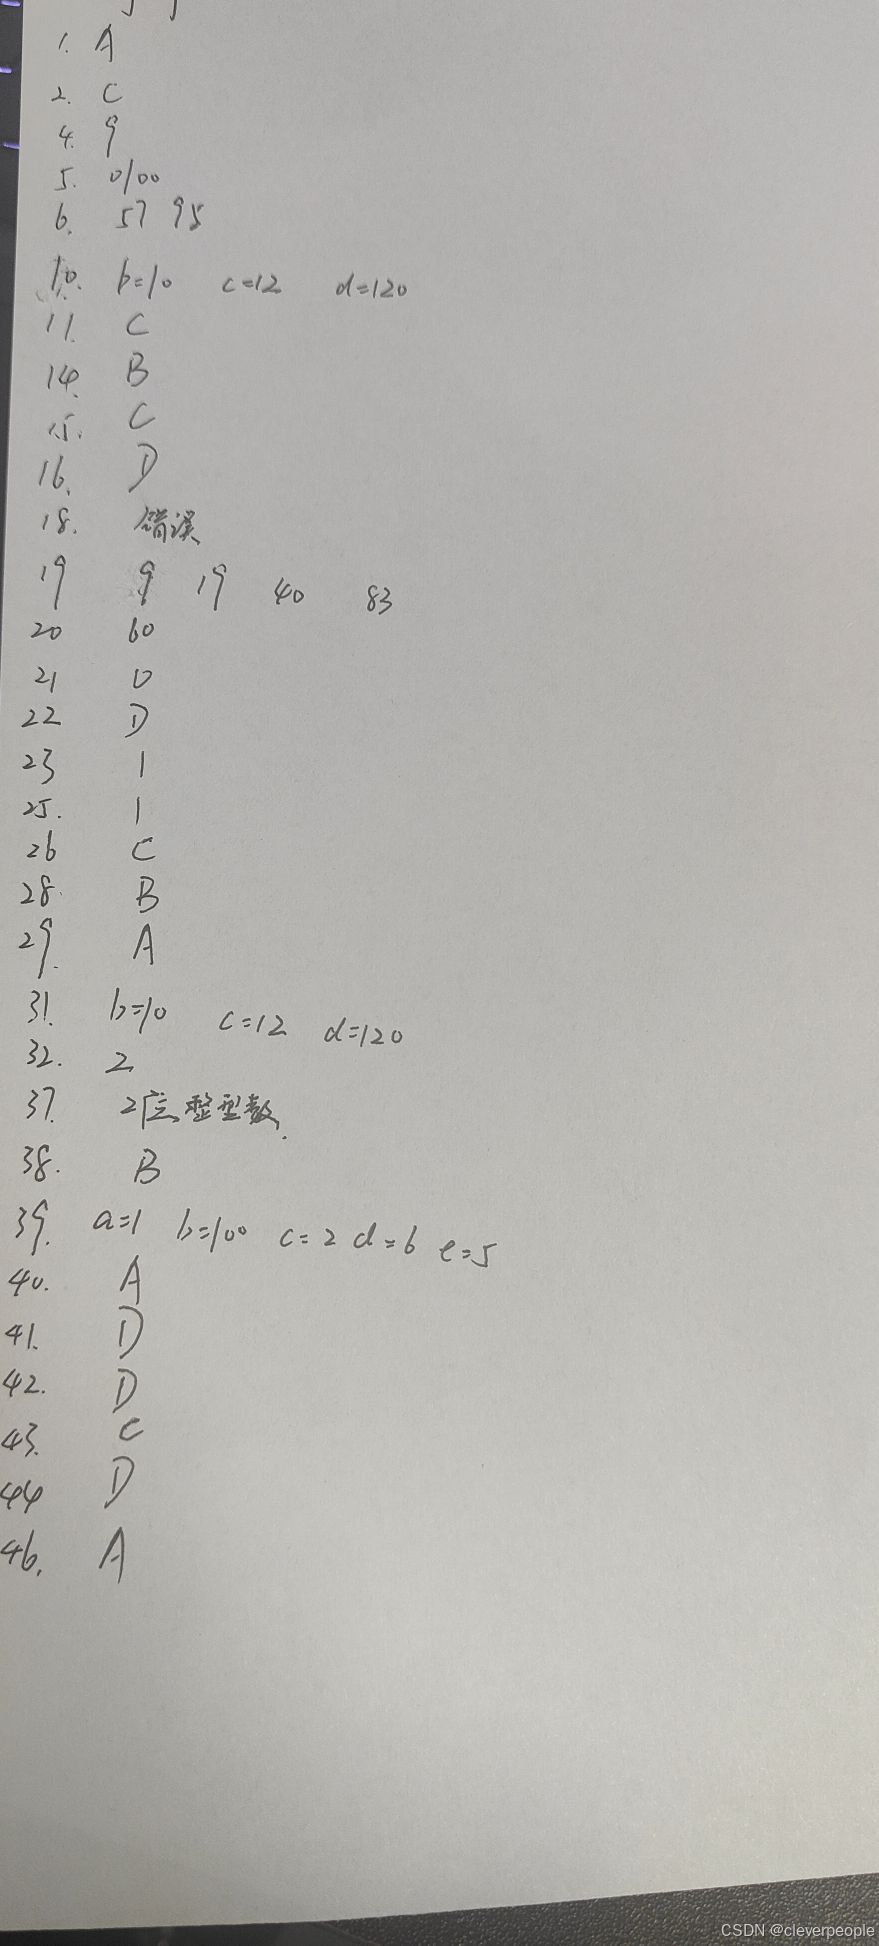 1. A
2. C
4. 9
5. 0100
6. 57 95
10. b=10 c=12 d=120
11. C
14. B
15. C
16. D
18. 错误
19 9 19 40 83
20 60
21 0
22 D
23 1
25. 1
26 C
28. B
29. A
31. b=10 c=12 d=120
32. 2
37. 2位整型数.
38. B
39. a=1 b=100 c=2 d=6 e=5
40. A
41. D
42. D
43. C
44 D
46. A
CSDN @cleverpeople